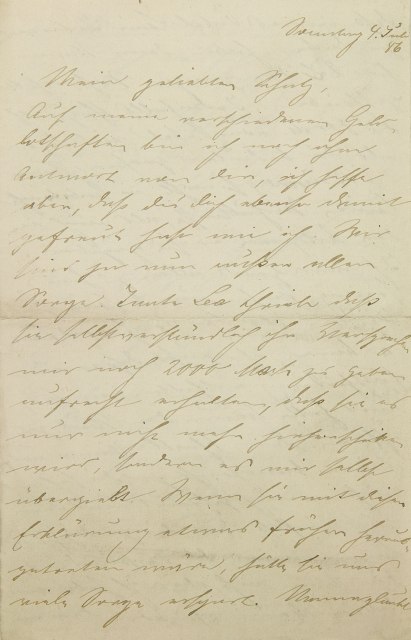 Sonntag 4. Juli
86
Mein geliebter Schatz,
Auf meine verschiedenen Geld-
botschaften bin ich noch ohne
Antwort von dir, ich hoffe
aber, daß du dich ebenso damit
gefreut hast wie ich. Wir
sind ja nun außer allen
Sorge. Tante Lea schrieb daß
sie selbstverständlich ihr Versprechen
mir noch 2000 Mark zu geben
aufrecht erhalten, daß sie es
nur nicht mehr
wird, sondern es mir selbst
übergiebt. Wenn sie mit dieser
Erklärung etwas früher heraus-
getreten wäre, hätte sie uns
viele Sorge erspart.